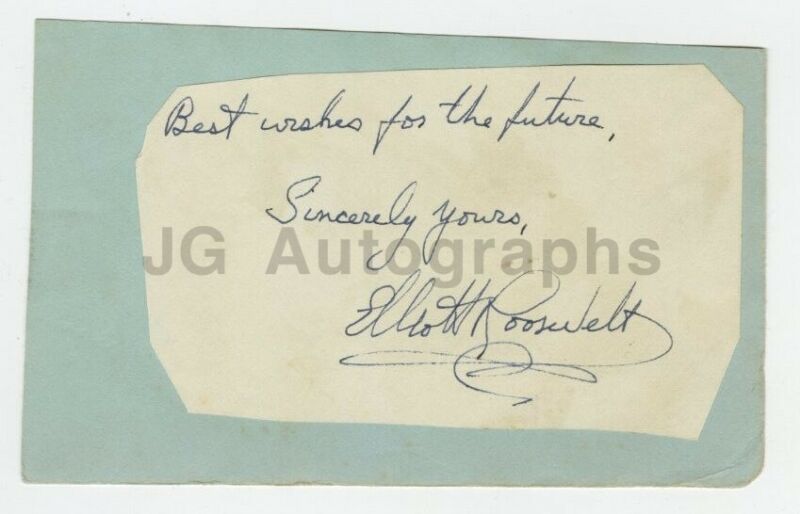 Best wishes for the future,
Sincerely yours,
JG Autographs
Elliott Roosevelt